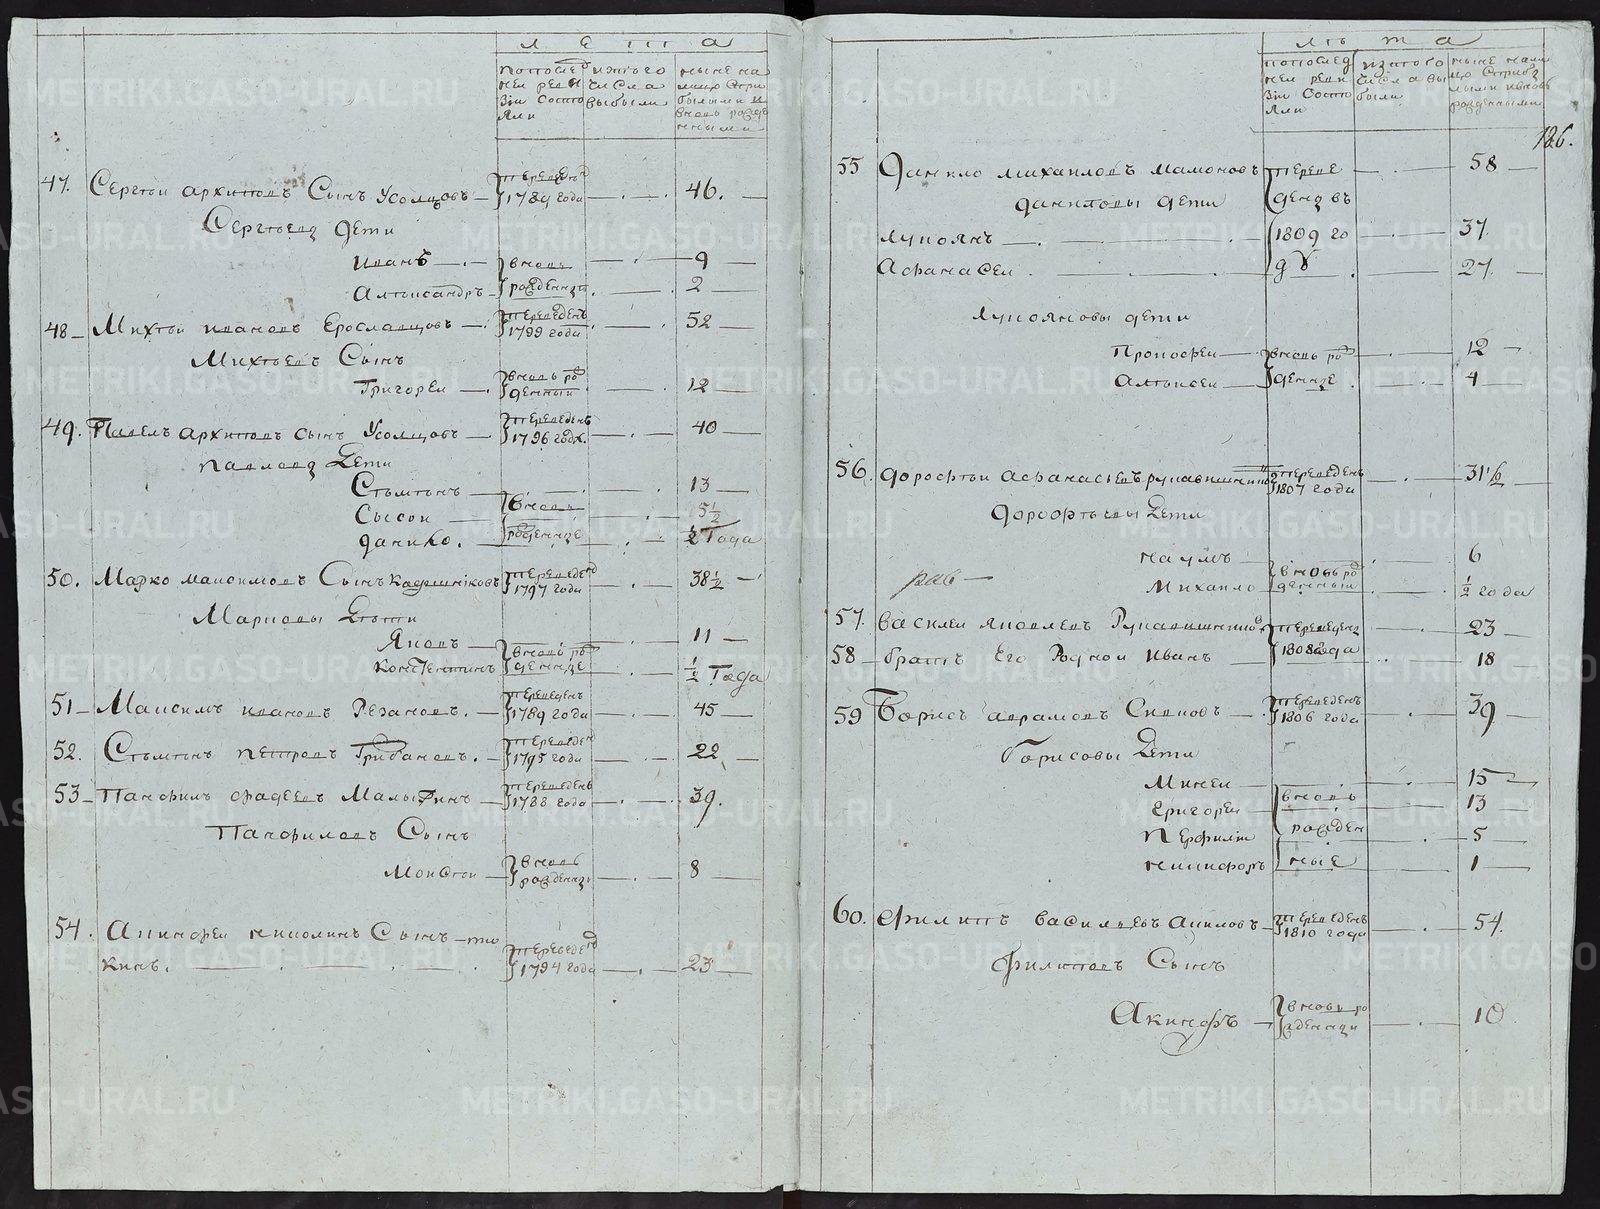 лета
по послед ней реви зiи состо яли
из того числа выбыли
ныне на лицо с при былыми и вновь рожде нными
47. Сергѣи архиповъ Сынъ Усолцовъ переведенъ 1789 года 46.
Сергѣева дети
иванъ вновь 9
Алѣксандръ рожденны 2
48 Михѣи ивановъ Ерославцовъ переведенъ 1799 года 52
Михѣевъ Сынъ
Григореи вновь рож денныи 12
49. Павелъ архиповъ сынъ Усолцовъ переведенъ 1796 года. 40
павлова Дети
Стѣпанъ 13
Сысои вновь 5½
данило. рожденные ½ Года
50. Марко максимовъ Сынъ Кадошниковъ переведенъ 1797 года 38½
Марковы Дѣти
Яковъ 11
констентинъ вновь рож денные ½ Года
51 Максимъ ивановъ Резановъ. переведенъ 1789 года 45
52. Стѣпанъ петровъ Грибановъ. переведенъ 1795 года 22
53 Панфилъ фадеевъ Малыгинъ переведенъ 1788 года 39.
Панфиловъ Сынъ
Моисеи вновь рожденны 8
54. Апинфеи николинъ Сынъ
кинъ. переведенъ 1794 года 23
лѣта
по послед ней реви зiи состо яли
из того числа вы были
ныне нали цо с прибы лыми и вновь рожденными
126.
55 Данило михаиловъ мамоновъ переве 58
даниловы дети дены въ
лукоянъ 1809 го 37
Афанасеи ду 27
лукояновы дети
Прокофеи вновь рож 12
Алѣксеи денные 4
56. дорофѣи афанасiевъ рукавишниковъ переведенъ 1807 года 31½
дорофѣевы Дети
наумъ 6
раб
Михаило вновь рож денныи ½ года
57. василеи яковлевъ Рукавишниковъ переведены 23
58 братъ Его Роднои иванъ 1808 года 18
59 Борисъ аврамовъ Сивковъ переведенъ 1806 года 39
борисовы Дети
Михеи 15
григореи вновь 13
перфилiи рожден 5
никифоръ ные 1
60. филипъ васильевъ Акиловъ переведенъ 1810 года 54.
филиповъ Сынъ
Акинфъ вновь ро жденны 10
METRIKI.GASO-URAL.RU